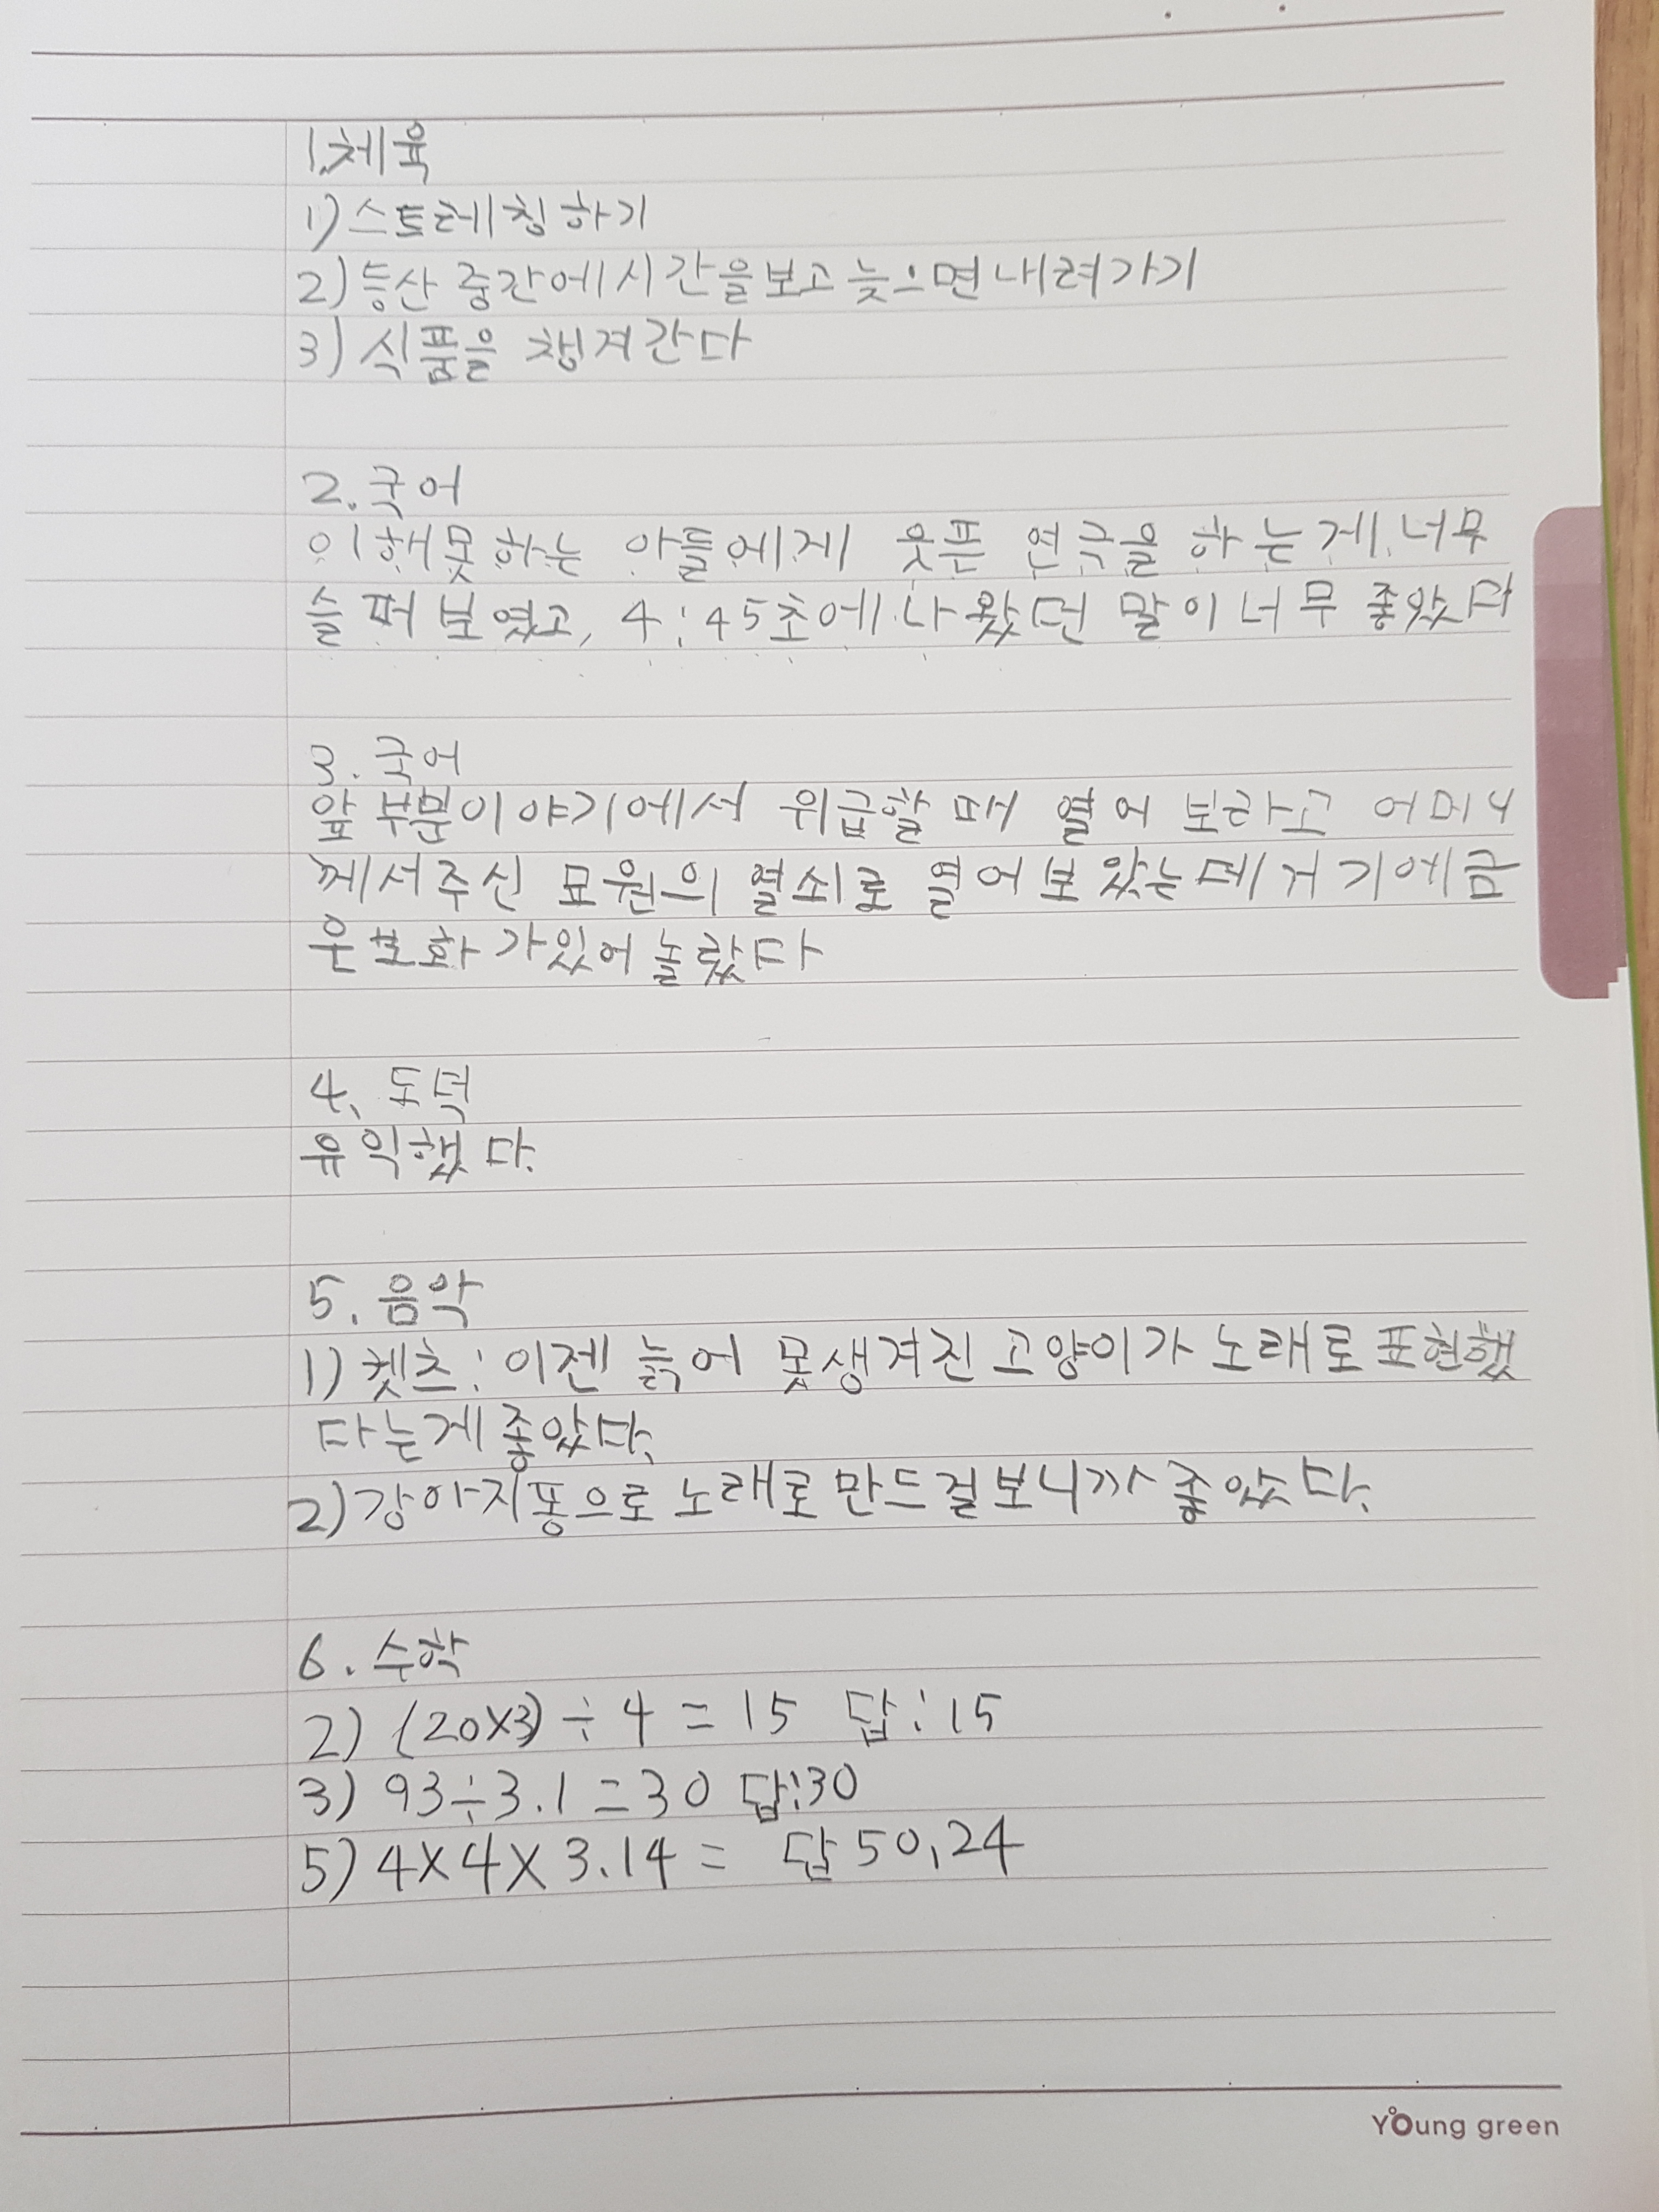 1.체육
1) 스트레칭하기
2) 등산 중간에 시간을 보고 늦으면 내려가기
3) 식품을 챙겨간다
2. 국어
이해못하는 아들에게 웃픈 연극을 하는게 너무
슬퍼 보였고, 4:45초에 나왔던 말이 너무 좋았다
3. 국어
앞 부분이야기에서 위급할 때 열어 보라고 어머니
께서 주신 묘원의 열쇠로 열어보았는데 거기에 금
은보화가있어 놀랐다
4. 도덕
유익했다.
5. 음악
1) 켓츠: 이젠 늙어 못생겨진 고양이가 노래로 표현했
다는게 좋았다.
2) 강아지똥으로 노래로 만드걸보니까 좋았다.
6. 수학
2) (20×3) ÷ 4 = 15 답:15
3) 93÷3.1=30 답:30
5) 4×4×3.14= 답 50.24
Young green